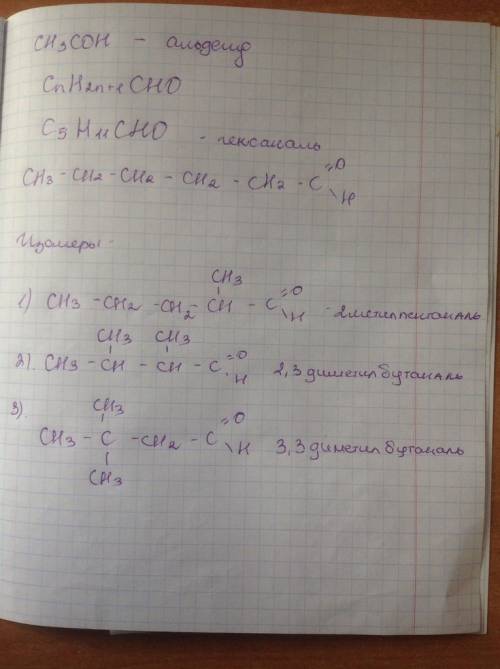 CH3COH - альдегид
CnH2n+1CHO
C5H11CHO - гексаналь
CH3 - CH2 - CH2 - CH2 - CH2 - C =O \H
Изомеры:
CH3
1) CH3 - CH2 - CH2 - CH - C =O \H - 2метилпентаналь
CH3 CH3
2). CH3 - CH - CH - C =O \H 2,3 диметилбутаналь
3).
CH3
CH3 - C - CH2 - C =O \H 3,3 диметилбутаналь
CH3